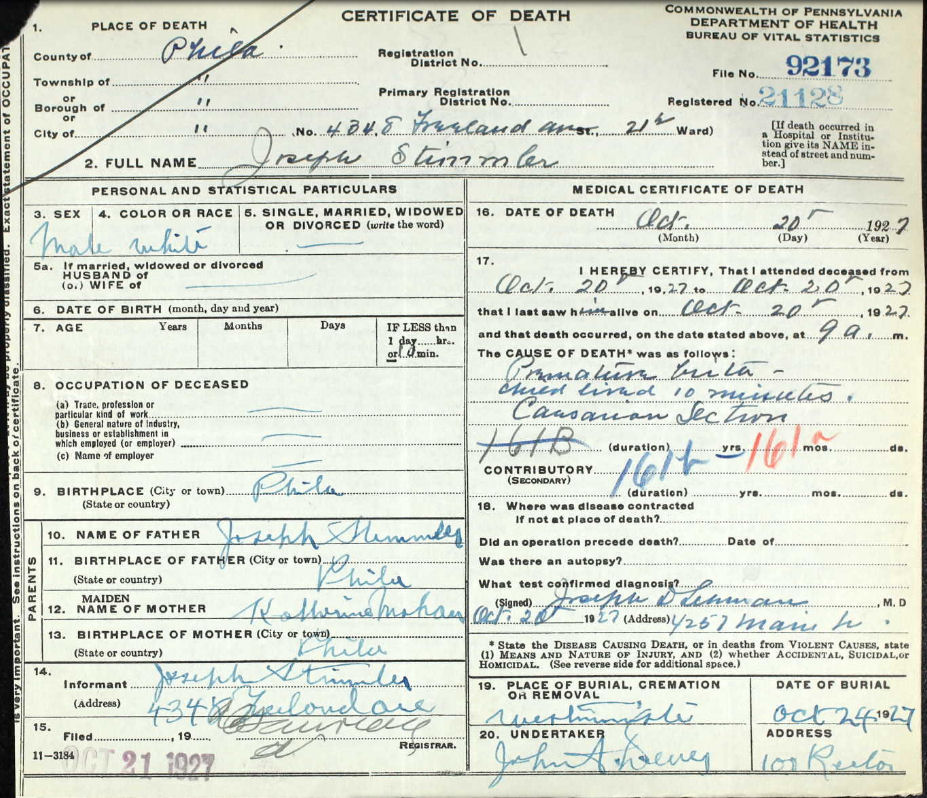 CERTIFICATE OF DEATH
COMMONWEALTH OF PENNSYLVANIA
DEPARTMENT OF HEALTH
BUREAU OF VITAL STATISTICS
1. PLACE OF DEATH
County of Phila.
Registration District No.
File No. 92173
Township of "
or
Borough of "
Primary Registration District No.
Registered No. 21128
or
City of " No. 4348 Freeland ave St. 21st Ward)
[If death occurred in a Hospital or Institution give its NAME instead of street and number.]
2. FULL NAME Joseph Stimmler
PERSONAL AND STATISTICAL PARTICULARS
3. SEX
4. COLOR OR RACE
5. SINGLE, MARRIED, WIDOWED OR DIVORCED (write the word)
Male white
5a. If married, widowed or divorced
HUSBAND of
(or.) WIFE of
6. DATE OF BIRTH (month, day and year)
7. AGE Years Months Days
IF LESS than
1 day hrs.
or 10 min.
8. OCCUPATION OF DECEASED
(a) Trade, profession or
particular kind of work
(b) General nature of industry,
business or establishment in
which employed (or employer)
(c) Name of employer
9. BIRTHPLACE (City or town) Phila
(State or country)
PARENTS
10. NAME OF FATHER Joseph Stimmler
11. BIRTHPLACE OF FATHER (City or town)
(State or country) Phila
12. MAIDEN NAME OF MOTHER Katherine
13. BIRTHPLACE OF MOTHER (City or town)
(State or country) Phila
14.
Informant Joseph Stimmler
(Address) 4348 Freeland ave
15.
Filed , 19
REGISTRAR.
11-3184
OCT 21 1927
MEDICAL CERTIFICATE OF DEATH
16. DATE OF DEATH Oct. 20 1927
(Month) (Day) (Year)
17.
I HEREBY CERTIFY, That I attended deceased from
Oct. 20, 1927 to Oct. 20, 1927
that I last saw him alive on Oct. 20, 1927
and that death occurred, on the date stated above, at 9 a. m.
The CAUSE OF DEATH* was as follows:
Premature birth -
child lived 10 minutes.
Causarian Section
161B (duration) yrs. 161a mos. ds.
CONTRIBUTORY 161b
(SECONDARY)
(duration) yrs. mos. ds.
18. Where was disease contracted
if not at place of death?
Did an operation precede death? Date of
Was there an autopsy?
What test confirmed diagnosis?
(Signed) Joseph D Lehman, M. D
Oct. 20 1927 (Address) 4257 Main St.
* State the DISEASE CAUSING DEATH, or in deaths from VIOLENT CAUSES, state
(1) MEANS AND NATURE OF INJURY, AND (2) whether ACCIDENTAL, SUICIDAL, or
HOMICIDAL. (See reverse side for additional space.)
19. PLACE OF BURIAL, CREMATION OR REMOVAL
Westminster
DATE OF BURIAL
Oct 24 1927
20. UNDERTAKER
John A.
ADDRESS
100 Rector